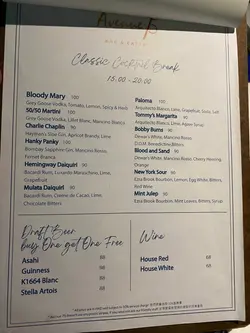 Avenue 75
BAR & EATERY
Classic Cocktail Break
15:00 - 20:00
Bloody Mary 100
Grey Goose Vodka, Tomato, Lemon, Spicy & Herb
50/50 Martini 100
Grey Goose Vodka, Lillet Blanc, Mancino Bianco
Charlie Chaplin 90
Hayman, Sloe Gin, Apricot Brandy, Lime
Hanky Panky 100
Bombay Sapphire Gin, Mancino Rosso,
Fernet Branca
Hemingway Daiquiri 90
Bacardi Rum, Luxardo Maraschino, Lime,
Grapefruit
Mulata Daiquiri 90
Bacardi Rum, Creme de Cacao, Lime,
Chocolate Bitters
Paloma 100
Arquitecto Blanco, Lime, Grapefruit, Soda, Salt
Tommy's Margarita 90
Arquitecto Blanco, Lime, Agave Syrup
Bobby Burns 90
Dewar's White, Mancino Rosso,
D.O.M. Benedictine Bitters
Blood and Sand 90
Dewar's White, Mancino Rosso, Cherry Heering,
Orange
New York Sour 90
Ezra Brook Bourbon, Lemon, Egg White, Bitters,
Red Wine
Mint Julep 90
Ezra Brook Bourbon, Mint Leaves, Bitters, Syrup
Draft Beer
buy One get One Free
Asahi 88
Guinness 98
K1664 Blanc 88
Stella Artois 88
Wine
House Red 68
House White 68